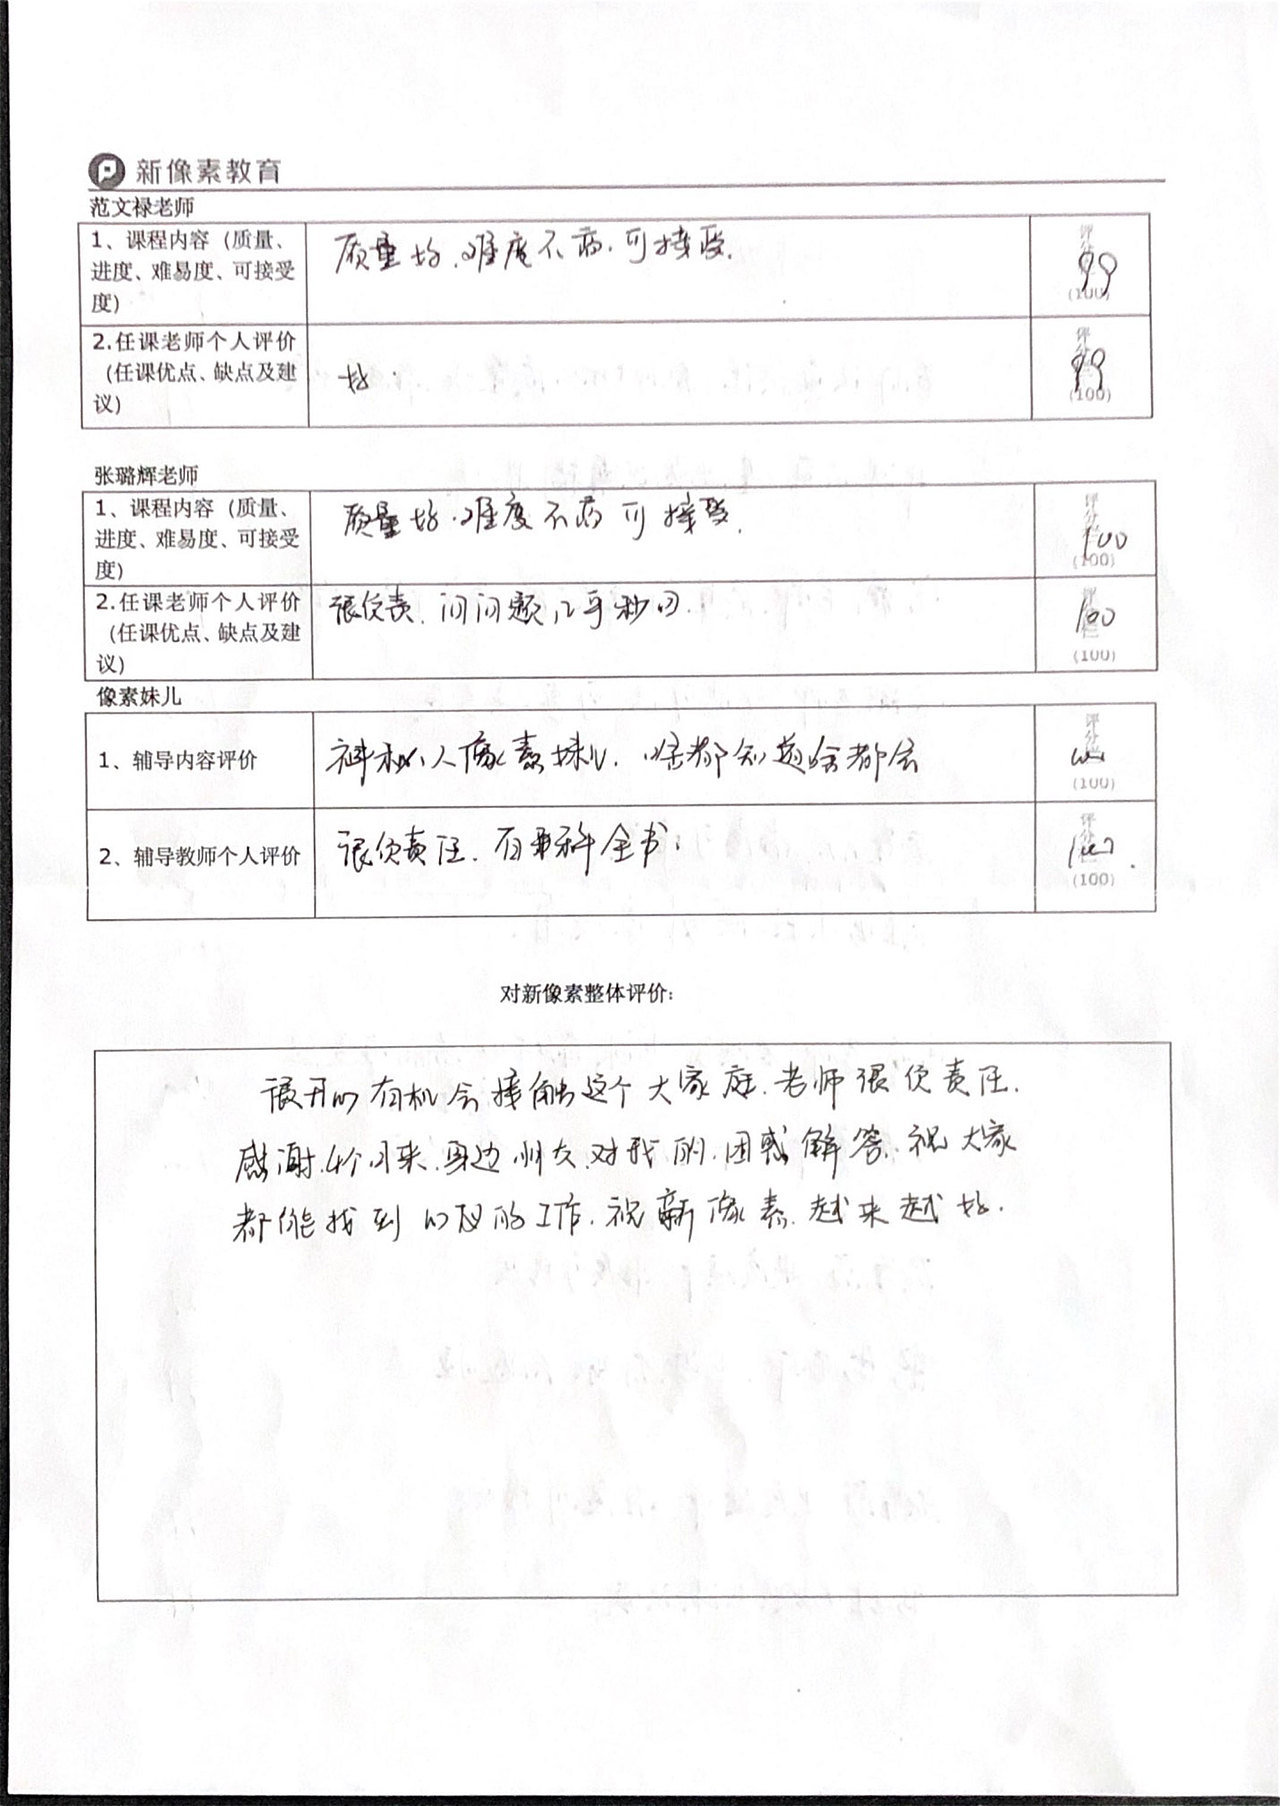 新像素教育
范文禄老师
1、课程内容（质量、
进度、难易度、可接受
度）
质量好.难度不高.可接受.
评分栏
99
(100)
2.任课老师个人评价
（任课优点、缺点及建
议）
好.
评分栏
99
(100)
张璐辉老师
1、课程内容（质量、
进度、难易度、可接受
度）
质量好.难度不高 可接受.
评分栏
100
(100)
2.任课老师个人评价
（任课优点、缺点及建
议）
很负责.问问题几乎秒回
评分栏
100
(100)
像素妹儿
1、辅导内容评价
神秘人像素妹儿.啥都知道啥都会
评分栏
100
(100)
2、辅导教师个人评价
很负责任.百科全书.
评分栏
100
(100)
对新像素整体评价：
很开心有机会接触这个大家庭.老师很负责任.
感谢.4个月来.身边朋友.对我的.困惑解答.祝大家
都能找到心仪的工作.祝新像素.越来越好.